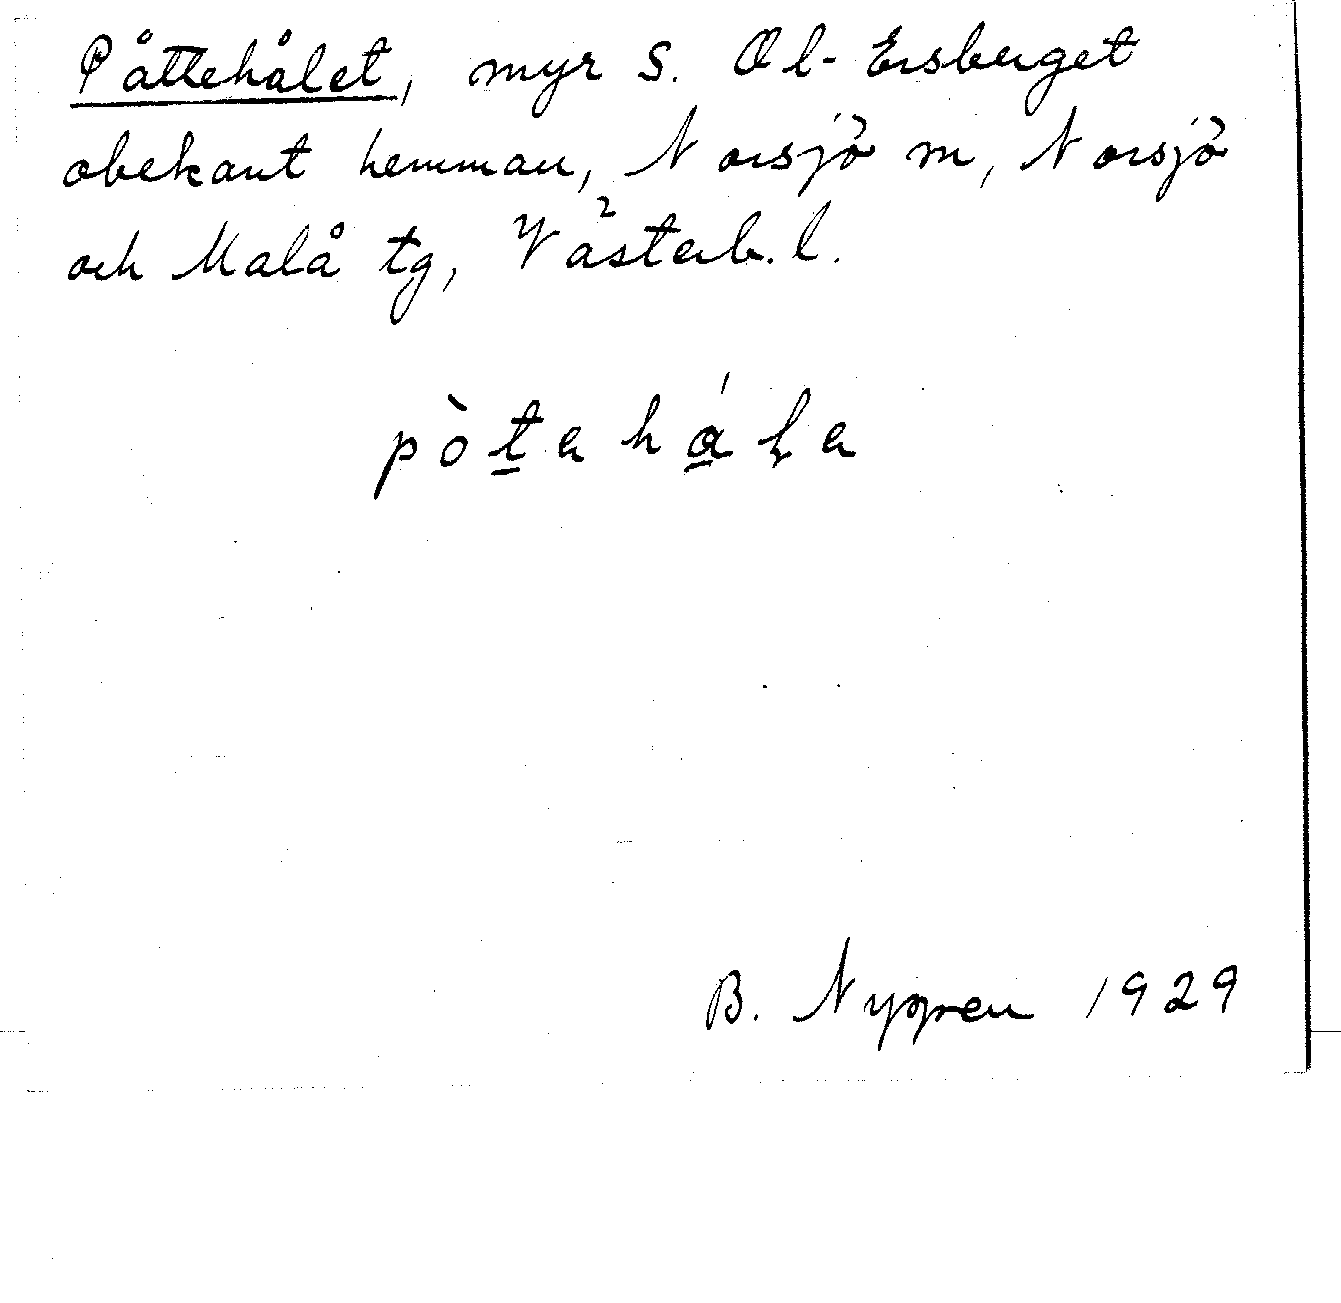 Påttehålet, myr S. Ol-Ersberget
obekant hemman, Norsjö m, Norsjö
och Malå tg, Västerb. l.
pòt̲ahá̲ḷa
B. Nygren 1929